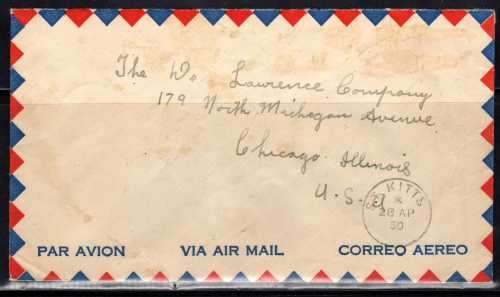 The Dr. Lawrence Company
179 North Michagan Avenue
Chicago Illinois
U.S.A
ST KITTS
28 AP
50
PAR AVION VIA AIR MAIL CORREO AEREO